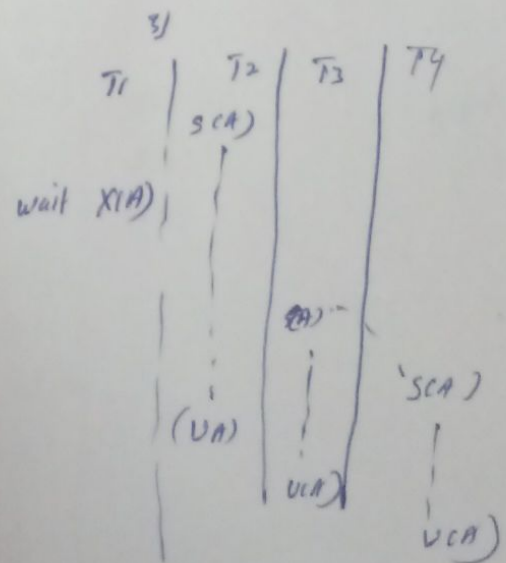 3)
T1 T2 T3 T4
S(A)
wait X(A)
S(A)
(UA)
U(A)
U(A)